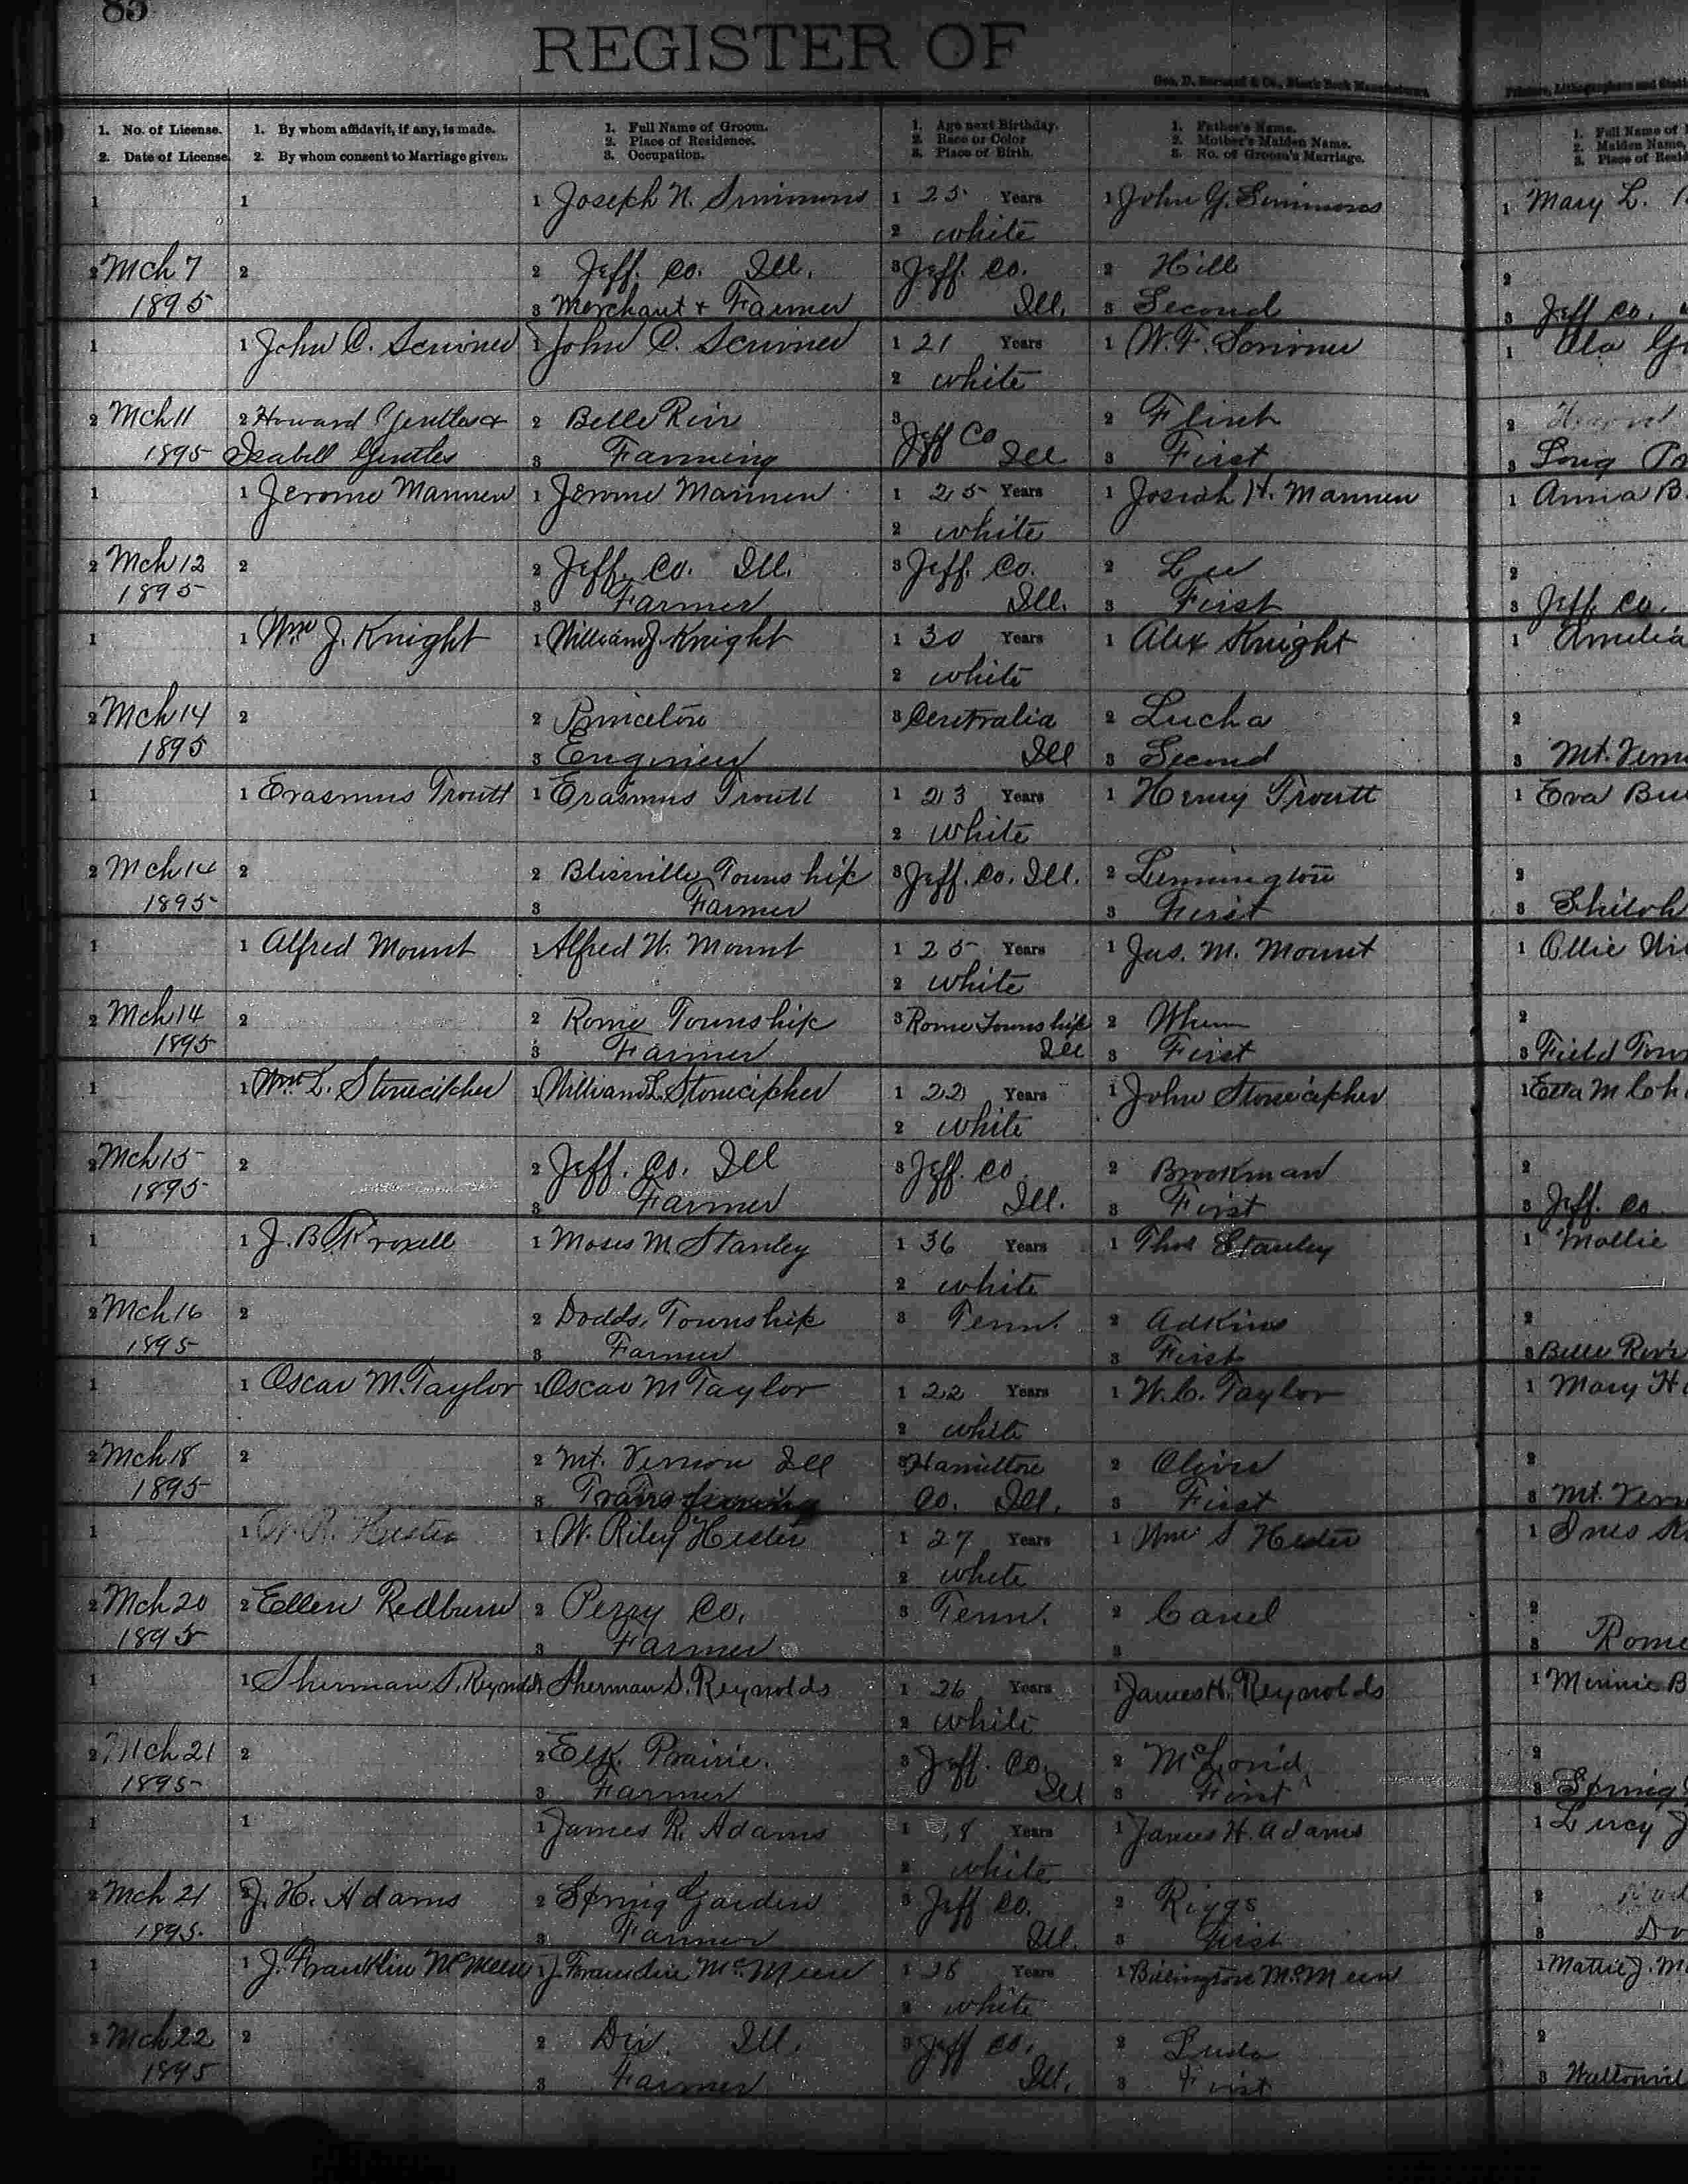 85
REGISTER OF
Geo. D. Barnard & Co., Blank Book Manufacturers,
1. No. of License.
2. Date of License.
1. By whom affidavit, if any, is made.
2. By whom consent to Marriage given.
1. Full Name of Groom.
2. Place of Residence.
3. Occupation.
1. Age next Birthday.
2. Race or Color
3. Place of Birth.
1. Father's Name.
2. Mother's Maiden Name.
3. No. of Groom's Marriage.
1. Full Name of
2. Maiden Name,
3. Place of
1 1 1 Joseph N. Simmons 1 25 Years 1 John G. Simmons 1 Mary L.
2 white
2 Mch 7 2 2 Jeff. Co. Ill. 3 Jeff. Co. 2 Hill 2
1895 3 Merchant & Farmer Ill. 3 Second 3 Jeff Co.
1 1 John C. Scrivner 1 John C. Scrivner 1 21 Years 1 W. F. Scrivner 1
2 white
2 Mch 11 2 Howard Gentles & 2 Belle Rive 3 Jeff Co 2 Flint 2
1895 Isabell Gentles 3 Farming Ill 3 First 3 Long
1 1 Jerome Mannen 1 Jerome Mannen 1 25 Years 1 Josiah H. Mannen 1 Anna B.
2 white
2 Mch 12 2 2 Jeff. Co. Ill. 3 Jeff. Co. 2 Lee 2
1895 3 Farmer Ill. 3 First 3 Jeff. Co.
1 1 Wm J. Knight 1 William J. Knight 1 30 Years 1 Alex Knight 1 Amelia
2 white
2 Mch 14 2 2 Princeton 3 Centralia 2 Lucha 2
1895 3 Engineer Ill 3 Second 3 Mt. Vern
1 1 Erasmus Troutt 1 Erasmus Troutt 1 23 Years 1 Henry Troutt 1 Eva
2 white
2 Mch 14 2 2 Blissville Township 3 Jeff. Co. Ill. 2 Lemington 2
1895 3 Farmer 3 First 3 Shiloh
1 1 Alfred Mount 1 Alfred W. Mount 1 25 Years 1 Jas. M. Mount 1 Ollie
2 white
2 Mch 14 2 2 Rome Township 3 Rome Township 2 2
1895 3 Farmer Ill 3 First 3 Field Town
1 1 Wm. L. Stonecipher 1 William L. Stonecipher 1 22 Years 1 John Stonecipher 1 Etta M
2 white
2 Mch 15 2 2 Jeff. Co. Ill 3 Jeff. Co. 2 Brookman 2
1895 3 Farmer Ill. 3 First 3 Jeff. Co
1 1 J. B. 1 Moses M. Stanley 1 36 Years 1 Thos Stanley 1 Mollie
2 white
2 Mch 16 2 2 Dodds, Township 3 Tenn. 2 Adkins 2
1895 3 Farmer 3 First 3 Belle Rive
1 1 Oscar M. Taylor 1 Oscar M Taylor 1 22 Years 1 W. C. Taylor 1 Mary
2 white
2 Mch 18 2 2 Mt. Vernon Ill 3 Hamilton 2 Oliver 2
1895 3 Co. Ill. 3 First 3 Mt. Vern
1 1 W. R. Hester 1 W. Riley Hester 1 27 Years 1 Wm S Hester 1 Ines
2 white
2 Mch 20 2 Ellen Redburn 2 Perry Co. 3 Tenn. 2 Canel 2
1895 3 Farmer 3 3 Rome
1 1 Sherman S. Reynolds 1 Sherman S. Reynolds 1 26 Years 1 James H. Reynolds 1 Minnie B
2 white
2 Mch 21 2 2 Elk Prairie. 3 Jeff. Co. 2 2
1895 3 Farmer Ill 3 First 3 Spring
1 1 1 James R. Adams 1 18 Years 1 James H. Adams 1 Lucy J
2 white
2 Mch 21 2 J. H. Adams 2 Spring Garden 3 Jeff Co. 2 Riggs 2
1895. 3 Farmer Ill. 3 First 3 Do
1 1 J. Franklin McMeen 1 J. Franklin McMeen 1 Years 1 Billington McMeen 1 Mattie J. M
2 white
2 Mch 22 2 2 Dix. Ill. 3 Jeff Co. 2 2
1895 3 Farmer Ill. 3 First 3 Waltonvil